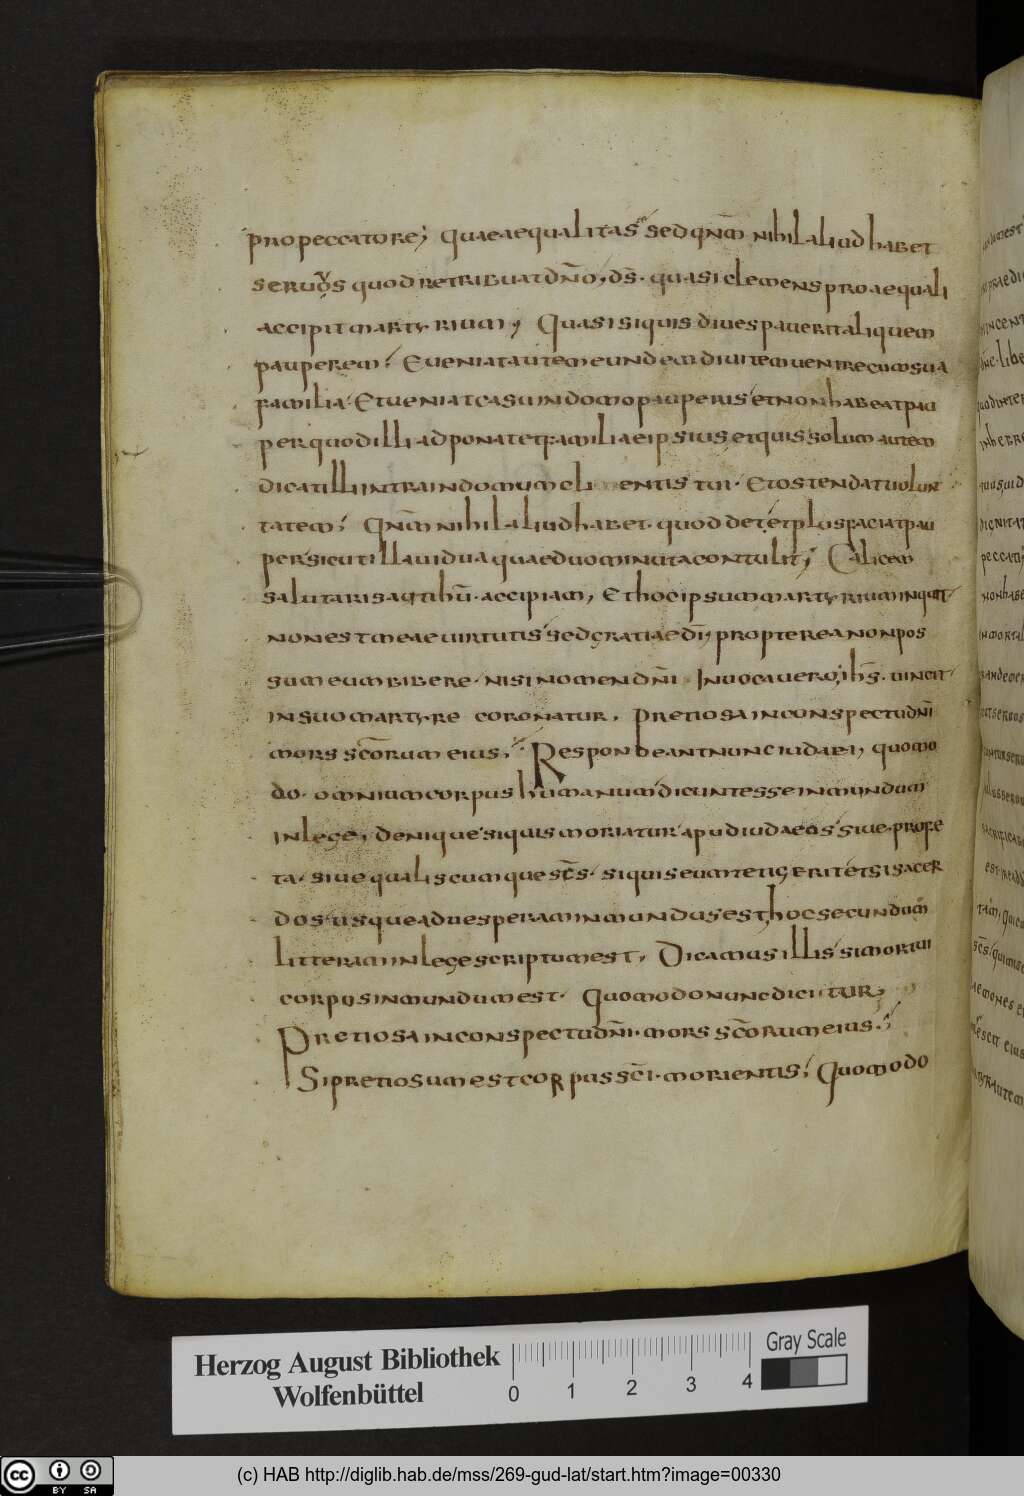 propeccatore; quaeaequalitas sedqnm nihilaliud habet
seruus quod retribuat dno; ds. quasi clemens pro aequali
accipit martyrium; Quasi siquis diues pauerit aliquem
pauperem; Eueniat autem eundem diuitem uenire cum sua
familia. Et ueniat casu in domo pauperis et non habeat pau
per quod illi adponat et familiae ipsius, et quis solum autem
dicat illi intra in domum cli entis tui. Et ostendat uolun
tatem; Qnm nihil aliud habet. quod det, et plus faciat pau
per sicut illa uidua quae duo minuta contulit; Calicem
salutaris accipiam, Et hoc ipsum martyrium inquit
non est meae uirtutis sed gratiae di; propterea non pos
sum eum bibere. nisi nomen dni Inuocauero; ihs. uincit
in suo martyre coronatur. Pretiosa in conspectu dni
mors scorum eius; Respondeant nunc iudaei, quomo
do. omnium corpus humanum dicunt esse in mundum
in lege, denique siquis moriatur apud iudaeos siue. profe
ta. siue qualiscumque scs. siquis eum tetigerit et si sacer
dos. usque ad uesperam inmundus est, hoc secundum
litteram in lege scriptum est, Dicamus illis si mortui
corpus inmundum est. Quomodo nunc dicitur,
Pretiosa in conspectu dni. mors scorum eius.
Si pretiosum est corpus sci. morientis; Quomodo
Herzog August Bibliothek
Wolfenbüttel
0 1 2 3 4
Gray Scale
cc BY SA
(c) HAB http://diglib.hab.de/mss/269-gud-lat/start.htm?image=00330